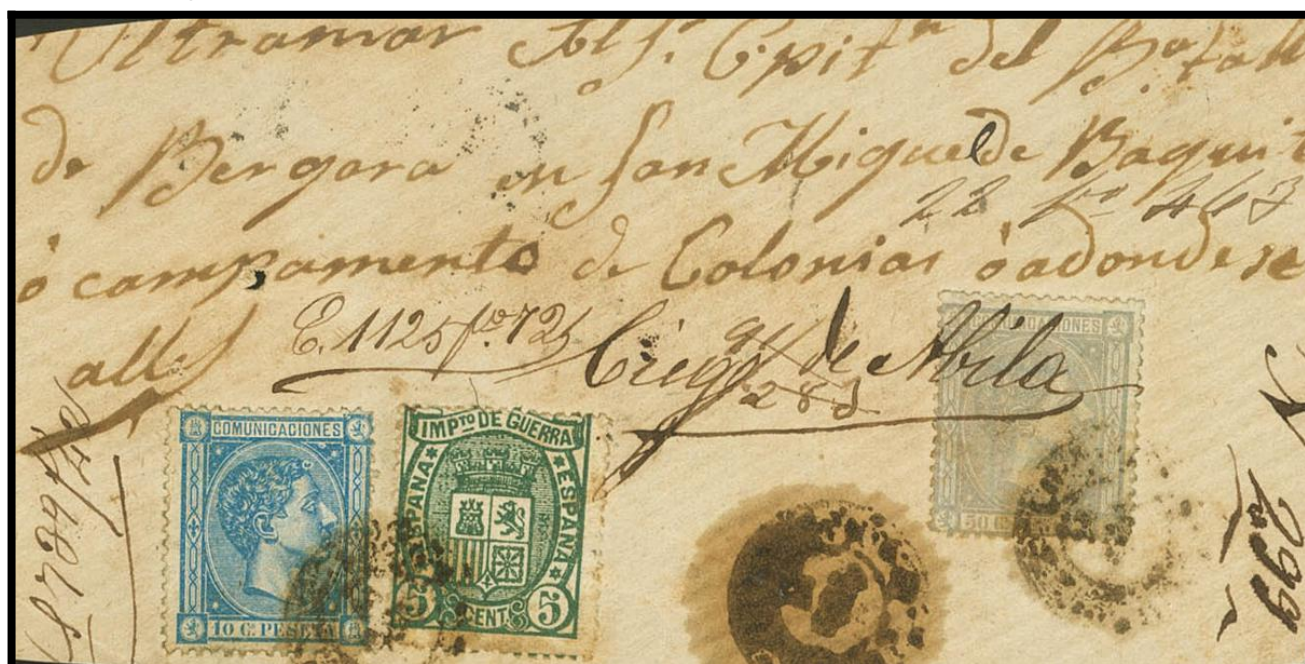 Ultramar Al Sr. Cpitn del Batall
de Bergara en San Miguel de Baquit
22 fo 467
ó campamento de Colonias ó adonde se
alle
E. 1125 fo. 725
Ciego de Abila
283
COMUNICACIONES
10 C. PESETA
IMPTO DE GUERRA
ESPAÑA ESPAÑA
5 CENT. 5
COMUNICACIONES
50 C.
299